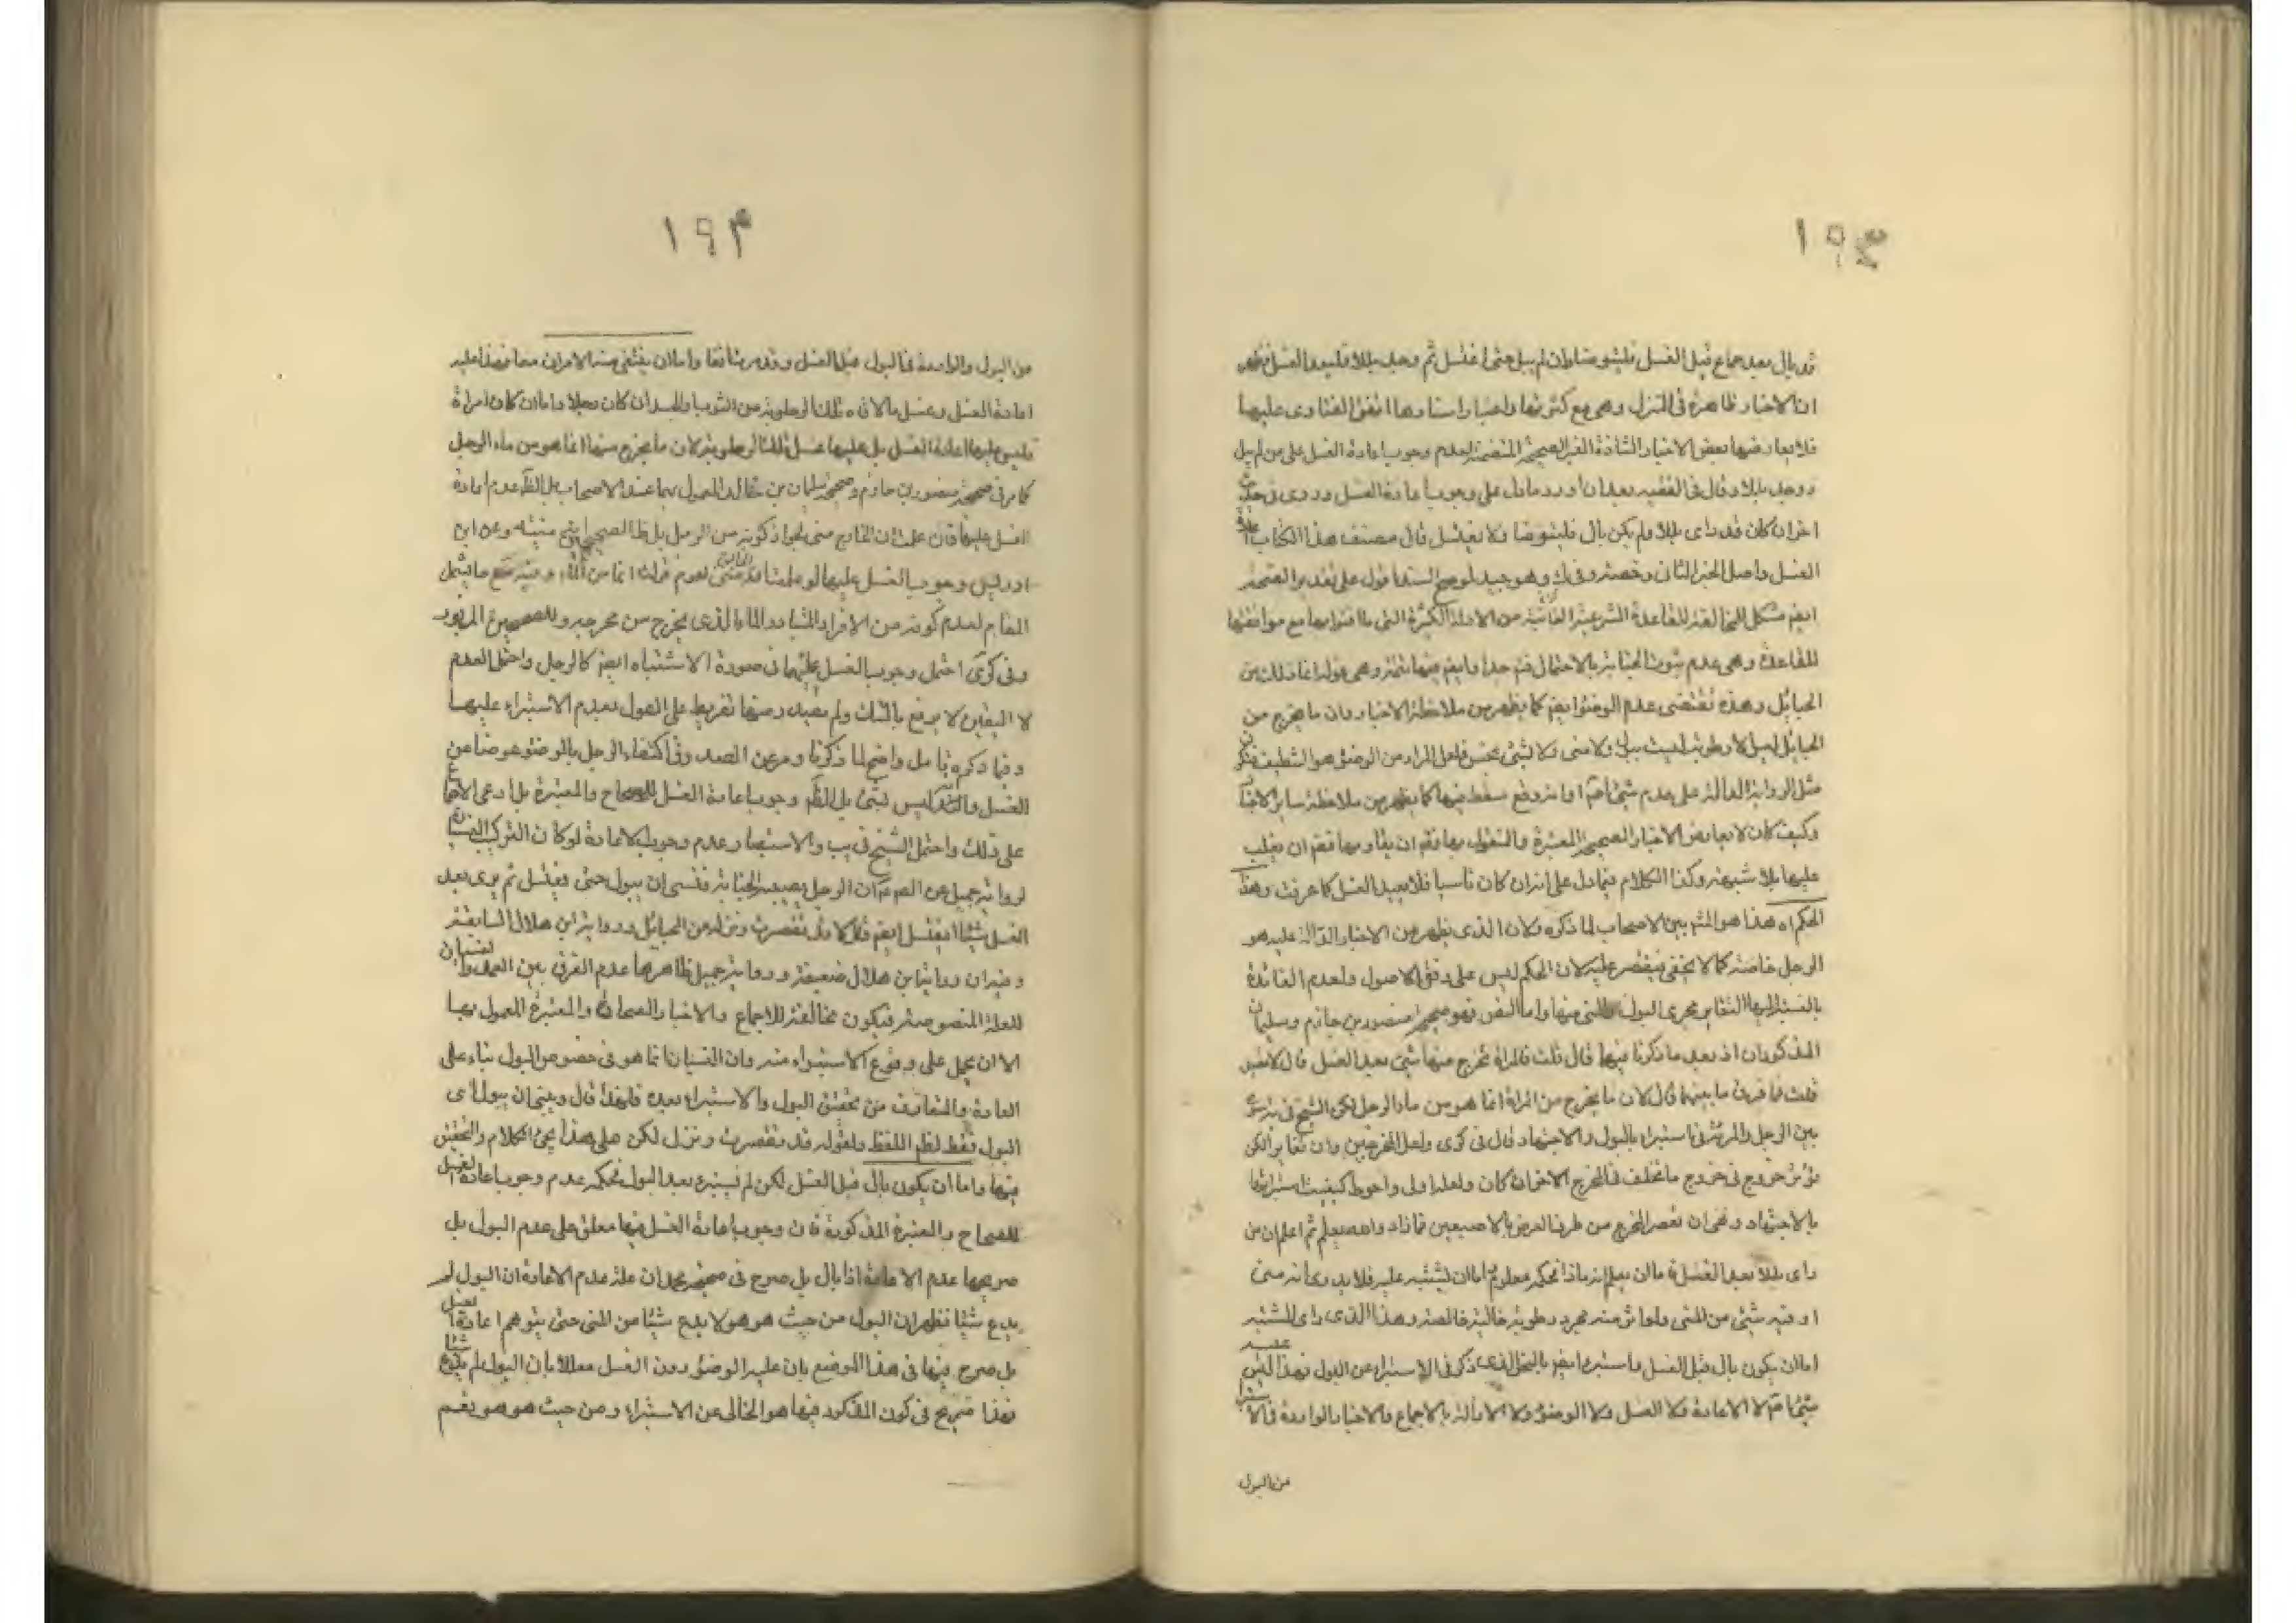 ١٩٣
قد بال بعد جماع قبل الغسل فليتوضا وان لم يبل حتى اغتسل ثم وجد بللا فليعد الغسل فظهر
ان الاخبار ظاهرة فى المنزل وهى مع كثرتها واعتبار اسنادها اتفق الفتاوى عليها
فلا يعارضها بعض الاخبار الشاذة الغير الصحيحة المتضمنة لعدم وجوب اعادة الغسل على من لم يبل
ووجد بللا وقال فى الفقيه بعد ان اورد ما دل على وجوب اعادة الغسل وروى فى حديث
اخر ان كان قد راى بللا ولم يكن بال فليتوضا ولا يغتسل قال مصنف هذا الكتاب اعادة
الغسل واصل الخبر الثانى رخصة وهو جيد لو صح السند اقول على تقدير الصحة
ايضم مشكل للمخالفة للقاعدة الشرعية من الادلة الكثيرة التى مع موافقتها
للقاعدة وهى عدم ثبوت الجنابة بالاحتمال وهى قوله انما ذلك من
الحبائل وهذه تقتضى عدم الوضوء ايضم كما يظهر من ملاحظة الاخبار وان ما يخرج من
الحبائل ليس الا رطوبة ليست ببول ولا منى ولا لشئ نجس فلعل المراد من الوضوء هو التنظيف
مثل الرواية الدالة على عدم شئ او انه وقع سقط فيها كما يظهر من ملاحظة ساير الاخبار
وكيف كان لا يعارض الاخبار الصحيحة المعتبرة والمعمول بها ان يقاومها ان يغلب
عليها بلا شبهة وكذا الكلام فيما دل على انه ان كان ناسيا فلا يعيد الغسل كما عرفت وهذا
الحكم اه هذا هو المشهور بين الاصحاب لما ذكره ولان الذى يظهر من الاخبار الدالة عليه هو
الرجل خاصة كما لا يخفى فيقتصر عليه لان الحكم ليس على وفق الاصول ولعدم الفائدة
بالنسبة اليها لتغاير مجرى البول والمنى منها واما النص فهو صحيحة منصور بن حازم وسليمان
المذكوران اذ بعد ما ذكرنا فيها قال قلت فالمراة يخرج منها شئ بعد الغسل قال لا تعيد
قلت فما فرق ما بينهما قال لان ما يخرج من المراة انما هو من ماء الرجل لكن الشيخ فى
بين الرجل والمراة فى استبراء بالبول والاجتهاد قال فى كرى ولعل المخرجين وان تغايرا لكن
يؤثر خروج فى خروج ما تخلف فى المخرج الاخر ان كان ولعله اولى واحوط كيفيت استبرائها
بالاجتهاد وهى ان تعصر المخرج من طرف العرض بالاصبعين فما زاد ثم اعلم ان من
راى بللا بعد الغسل فاما ان يعلم انه ماذا فحكمه معلوم واما ان يشتبه عليه فلا يدرى انه منى
او فيه شئ من المنى ولو اثر منه مجرد رطوبة خالية خالصة وهذا الذى راى المشتبه
اما ان يكون بال قبل الغسل واستبرا ايضم بالنحو الذى ذكر فى الاستبراء عن البول فهذا ليس عليه
شئ لا الاعادة ولا الغسل ولا الوضوء ولا الازالة بالاجماع والاخبار الواردة فى الاستبراء
من البول
١٩٤
من البول والواردة فى البول قبل الغسل وقد مرتا انفا واما ان ينتفى منه الامران معا فهذا عليه
اعادة الغسل وغسل ما لاقاه تلك الرطوبة من الثوب والبدن ان كان رجلا واما ان كان امراة
فليس عليها اعادة الغسل بل عليها غسل تلك الرطوبة لان ما يخرج منها انما هو من ماء الرجل
كما مر فى صحيحة منصور بن حازم وصحيحة سليمان بن خالد المعمول بهما عند الاصحاب بل الظاهر عدم اعادة
الغسل عليها فان علمت ان الخارج منى بجواز كونه من الرجل بل ظ الصحيحين منيته وعن ابن
ادريس وجوب الغسل عليها لو علمت انه منى لعموم قوله انما من الماء وفيه منع ما يشمل
المقام لعدم كونه من الافراد المتبادر الماء الذى يخرج من مخرجه وللصحيحين المزبور
وفى كرى احتمل وجوب الغسل عليها فى صورة الاشتباه ايضم كالرجل واحتمل العدم
لا اليقين لا يرفع بالشك ولم يصدر منها تفريط على القول بعدم الاستبراء عليها
وفيما ذكره تامل واضح لما ذكرنا ومر عن الصدوق اكتفاء الرجل بالوضوء عوضا عن
الغسل ليس بشئ بل الظاهر وجوب اعادة الغسل للصحاح والمعتبرة بل ادعى الاجماع
على ذلك واحتمل الشيخ فى يب والاستبصار عدم وجوب الاعادة لو كان الترك نسيانا
لرواية جميل عن الصادق ان الرجل يصيبه الجنابة فنسى ان يبول حتى يغتسل ثم يرى بعد
الغسل شيئا ايغتسل ايضم قال لا قد تعصرت ونزل من الحبائل ورواية ابن هلال السابقة
وفيه ان رواية ابن هلال ضعيفة ورواية جميل ظاهرها عدم الفرق بين العمد والنسيان
للعلة المنصوصة فيكون مخالفة للاجماع والاخبار الصحاح والمعتبرة المعمول بها
الا ان يحمل على وقوع الاستبراء منه وان النسيان انما هو فى خصوص البول بناء على
العادة والمتعارف من تحقق البول والاستبراء بعده فلهذا قال ونسى ان يبول اى
البول فقط لظاهر اللفظ ولقوله قد تعصرت ونزل لكن على هذا يجئ الكلام والتحقيق
فيها واما ان يكون بال قبل الغسل لكن لم يستبرء بعد البول فحكمه عدم وجوب اعادة الغسل
للصحاح والمعتبرة المذكورة فان وجوب اعادة الغسل فيها معلق على عدم البول بل
صريحها عدم الاعادة اذا بال بل صرح فى صحيحة محمد ان علة عدم الاعادة ان البول لم
يدع شيئا فظهر ان البول من حيث هو هو لا يدع شيئا من المنى حتى يتوهم اعادة الغسل
بل صرح فيها فى هذا الموضع بان عليه الوضوء دون الغسل معللا بان البول لم يدع شيئا
فهذا صريح فى كون المذكور فيها هو الخالى عن الاستبراء ومن حيث هو هو نعم